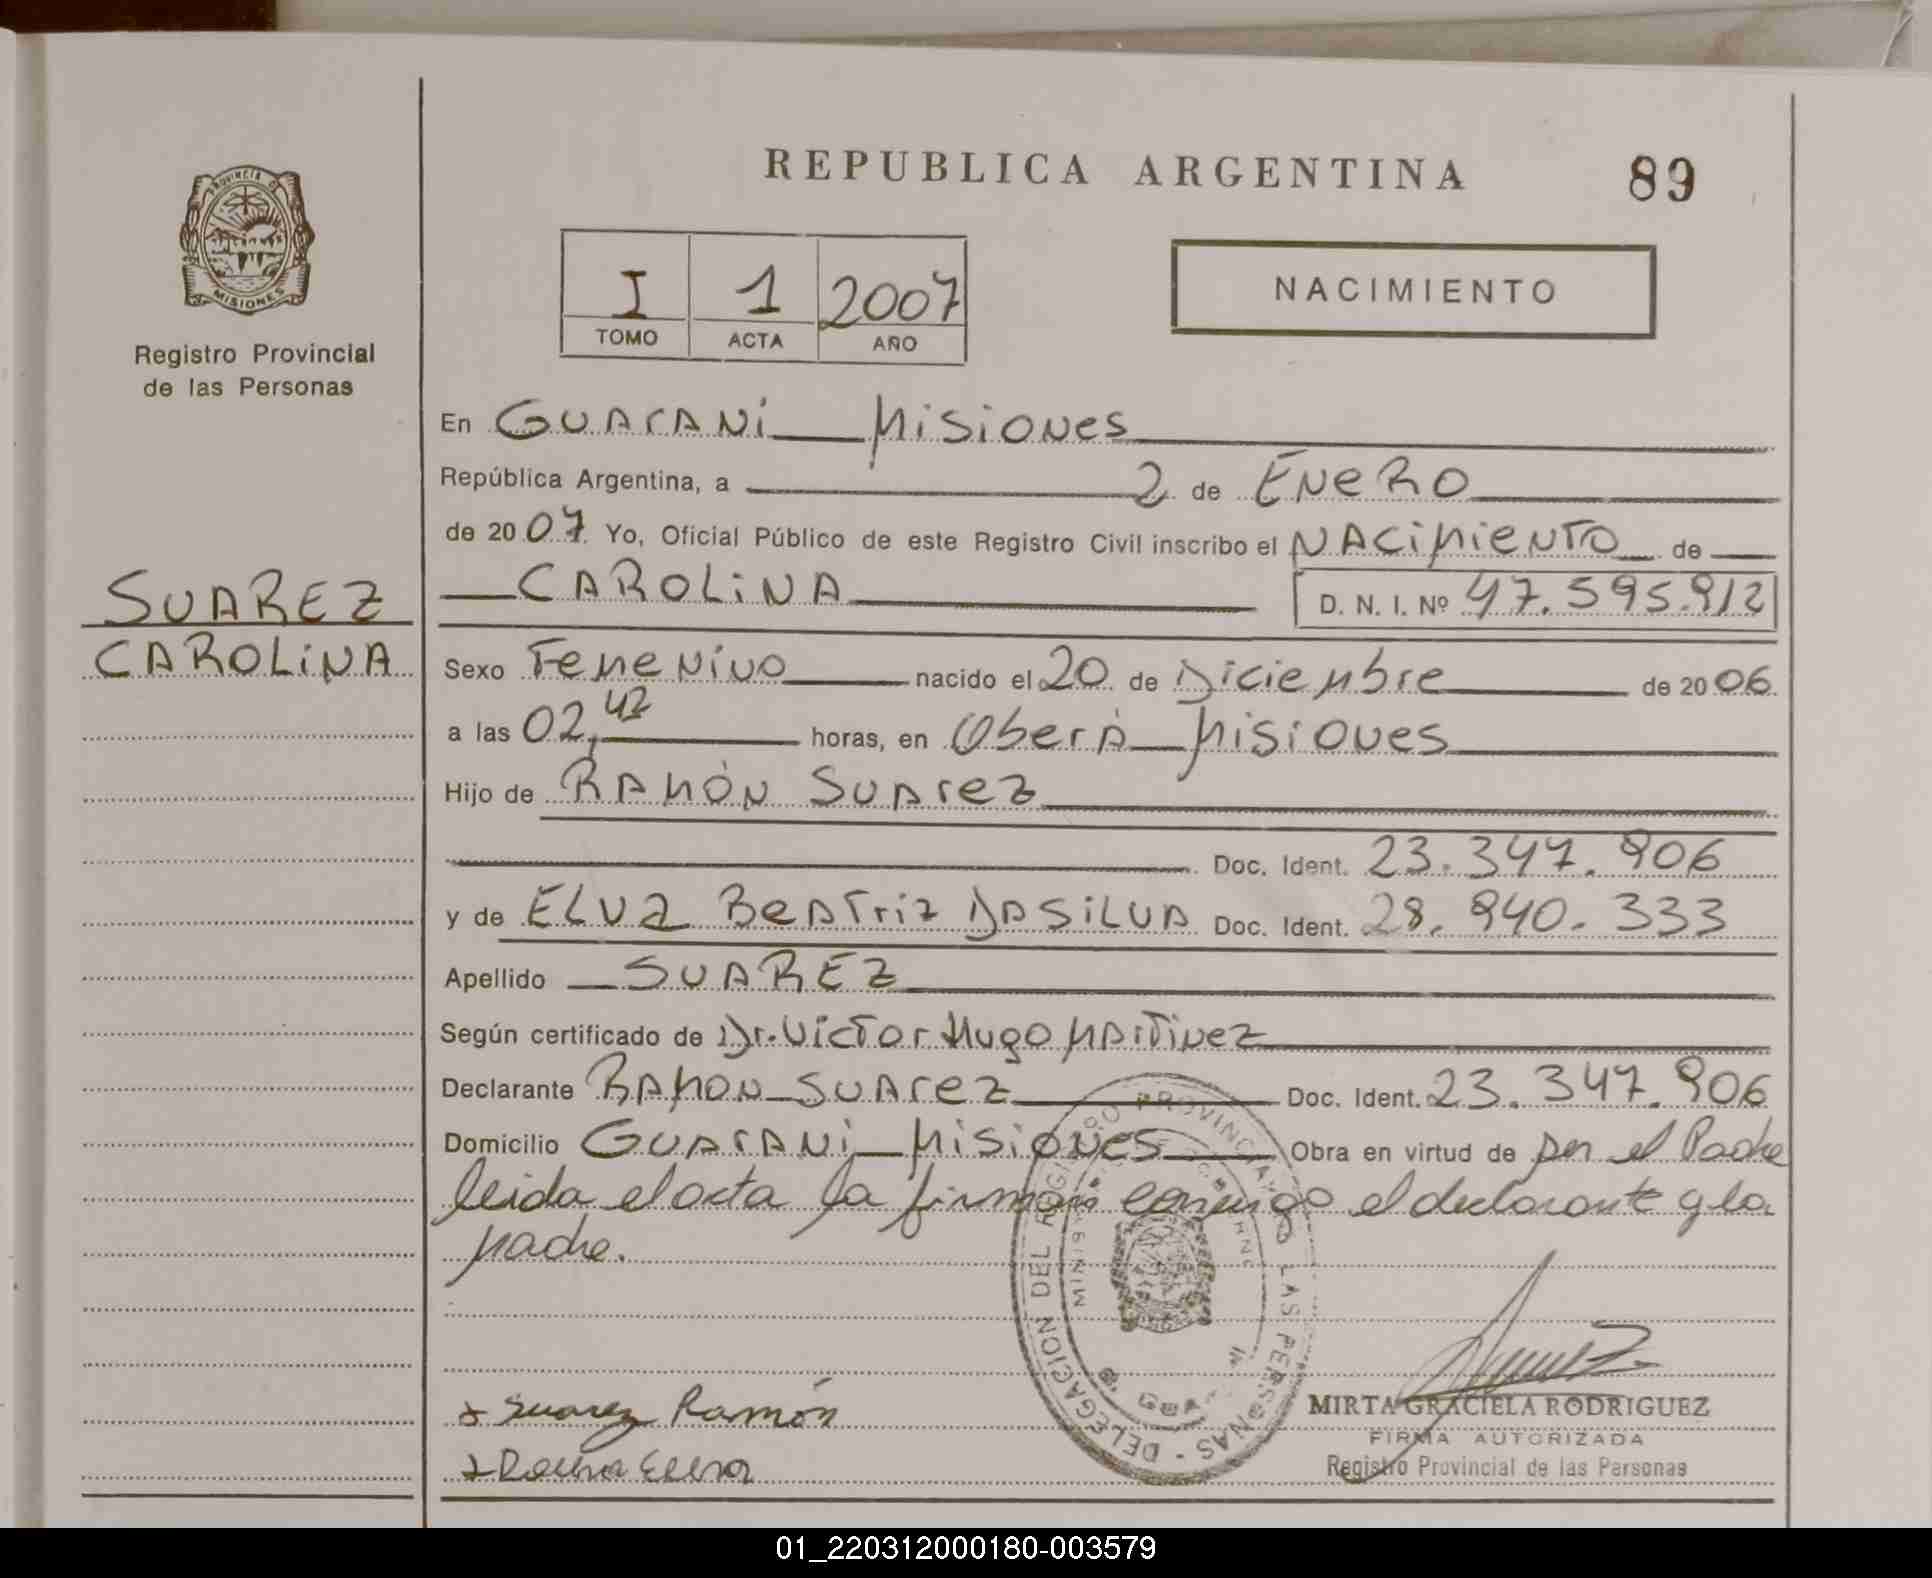 REPUBLICA ARGENTINA
89
PROVINCIA DE
MISIONES
Registro Provincial
de las Personas
I 1 2007
TOMO ACTA AÑO
NACIMIENTO
En GUARANÍ MISIONES
República Argentina, a 2 de ENERO
de 2007 Yo, Oficial Público de este Registro Civil inscribo el NACIMIENTO de
CAROLINA D. N. I. Nº 47.595.912
SUAREZ
CAROLINA
Sexo Femenino nacido el 20 de Diciembre de 2006
a las 02,42 horas, en Oberá Misiones
Hijo de Ramón Suarez
Doc. Ident. 23.347.906
y de ELVA Beatriz Dasilva Doc. Ident. 28.940.333
Apellido SUAREZ
Según certificado de Dr. Victor Hugo Martinez
Declarante Ramon Suarez Doc. Ident. 23.347.906
Domicilio Guaraní Misiones Obra en virtud de ser el Padre
leida el acta la firman conmigo el declarante y la
madre.
DELEGACION DEL REGISTRO PROVINCIAL DE LAS PERSONAS
Suarez Ramón
MIRTA GRACIELA RODRIGUEZ
FIRMA AUTORIZADA
Registro Provincial de las Personas
01_220312000180-003579